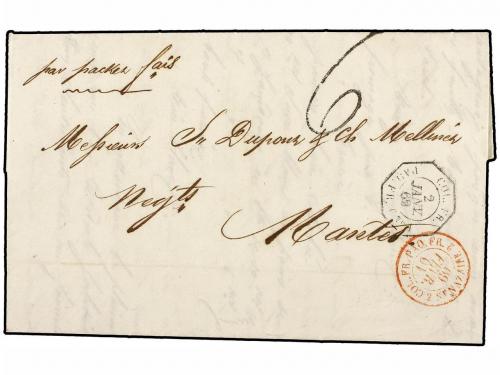 par packet fais
6
Messieurs Sn Dupour & Ch Mellinet
Négts
Nantes
COL. FR.
PAQ. FR.
2
JANV.
69
COL. FR. PAQ. FR.
69